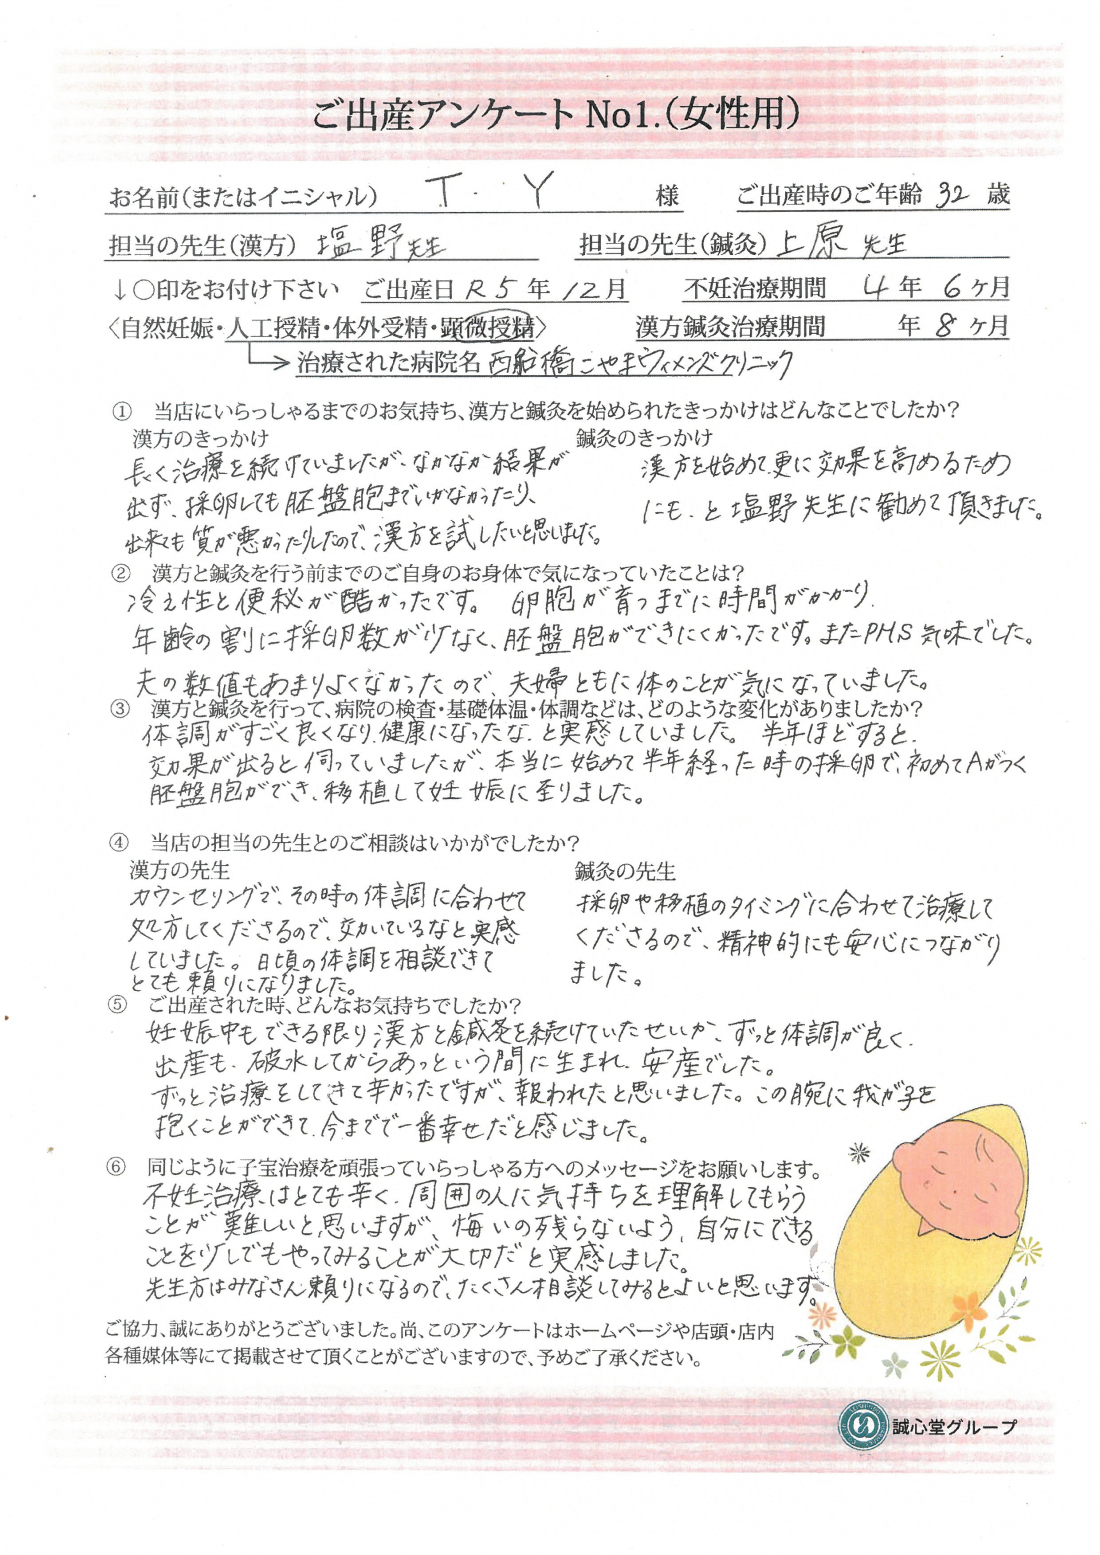 ご出産アンケート No1.(女性用)
お名前(またはイニシャル) T. Y 様 ご出産時のご年齢 32 歳
担当の先生(漢方) 塩野先生 担当の先生(鍼灸) 上原 先生
↓○印をお付け下さい ご出産日 R5 年 12 月 不妊治療期間 4 年 6 ヶ月
〈自然妊娠・人工授精・体外受精・顕微授精〉 漢方鍼灸治療期間 年 8 ヶ月
治療された病院名 西船橋こやまウィメンズクリニック
① 当店にいらっしゃるまでのお気持ち、漢方と鍼灸を始められたきっかけはどんなことでしたか?
漢方のきっかけ
長く治療を続けていましたが、なかなか結果が
出ず、採卵しても胚盤胞までいかなかったり、
出来ても質が悪かったりしたので、漢方を試したいと思いました。
鍼灸のきっかけ
漢方を始めて、更に効果を高めるため
にも、と塩野先生に勧めて頂きました。
② 漢方と鍼灸を行う前までのご自身のお身体で気になっていたことは?
冷え性と便秘が酷かったです。 卵胞が育つまでに時間がかかり、
年齢の割に採卵数が少なく、胚盤胞ができにくかったです。またPHS気味でした。
夫の数値もあまりよくなかったので、夫婦ともに体のことが気になっていました。
③ 漢方と鍼灸を行って、病院の検査・基礎体温・体調などは、どのような変化がありましたか?
体調がすごく良くなり、健康になったな、と実感していました。 半年ほどすると、
効果が出ると伺っていましたが、本当に始めて半年経った時の採卵で、初めてAがつく
胚盤胞ができ、移植して妊娠に至りました。
④ 当店の担当の先生とのご相談はいかがでしたか?
漢方の先生
カウンセリングで、その時の体調に合わせて
処方してくださるので、効いているなと実感
していました。日頃の体調を相談できて
とても頼りになりました。
鍼灸の先生
採卵や移植のタイミングに合わせて治療して
くださるので、精神的にも安心につながり
ました。
⑤ ご出産された時、どんなお気持ちでしたか?
妊娠中もできる限り漢方と鍼灸を続けていたせいか、ずっと体調が良く、
出産も、破水してからあっという間に生まれ、安産でした。
ずっと治療をしてきて辛かったですが、報われたと思いました。この腕に我が子を
抱くことができて、今までで一番幸せだと感じました。
⑥ 同じように子宝治療を頑張っていらっしゃる方へのメッセージをお願いします。
不妊治療はとても辛く、周囲の人に気持ちを理解してもらう
ことが難しいと思いますが、悔いの残らないよう、自分にできる
ことを少しでもやってみることが大切だと実感しました。
先生方はみなさん頼りになるので、たくさん相談してみるとよいと思います。
ご協力、誠にありがとうございました。尚、このアンケートはホームページや店頭・店内
各種媒体等にて掲載させて頂くことがございますので、予めご了承ください。
誠心堂グループ